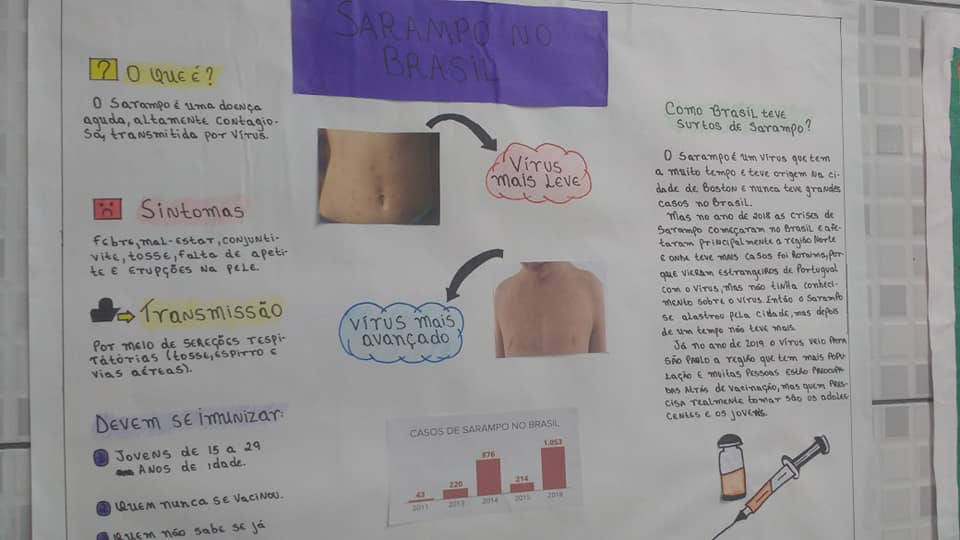 SARAMPO NO
BRASIL
? O QUE É?
O SARAMPO É UMA DOENÇA
AGUDA, ALTAMENTE CONTAGIO-
SA, TRANSMITIDA POR VÍRUS.
SINTOMAS
FEBRE, MAL-ESTAR, CONJUNTI-
VITE, TOSSE, FALTA DE APETI-
TE E ERUPÇÕES NA PELE.
TRANSMISSÃO
POR MEIO DE SEREÇÕES RESPI-
RATÓRIAS (TOSSE, ESPIRRO E
VIAS AÉREAS).
DEVEM SE IMUNIZAR:
JOVENS DE 15 A 29
ANOS DE IDADE.
QUEM NUNCA SE VACINOU.
QUEM NÃO SABE SE JÁ
VÍRUS
MAIS LEVE
VÍRUS MAIS
AVANÇADO
CASOS DE SARAMPO NO BRASIL
43 220 876 214 1.053
2011 2013 2014 2015 2018
COMO BRASIL TEVE
SURTOS DE SARAMPO?
O SARAMPO É UM VÍRUS QUE TEM
A MUITO TEMPO E TEVE ORIGEM NA CI-
DADE DE BOSTON E NUNCA TEVE GRANDES
CASOS NO BRASIL.
MAS NO ANO DE 2018 AS CRISES DE
SARAMPO COMEÇARAM NO BRASIL E AFE-
TARAM PRINCIPALMENTE A REGIÃO NORTE
E ONDE TEVE MAIS CASOS FOI RORAIMA, POR
QUE VIERAM ESTRANGEIROS DE PORTUGAL
COM O VIRUS, MAS NÃO TINHA CONHECI-
MENTO SOBRE O VIRUS. ENTÃO O SARAMPO
SE ALASTROU PELA CIDADE, MAS DEPOIS
DE UM TEMPO NÃO TEVE MAIS.
JÁ NO ANO DE 2019 O VÍRUS VEIO PARA
SÃO PAULO A REGIÃO QUE TEM MAIS POPU
LAÇÃO E MUITAS PESSOAS ESTÃO PREOCUPA
DAS ATRÁS DE VACINAÇÃO, MAS QUEM PRE-
CISA REALMENTE TOMAR SÃO OS ADOLES
CENTES E OS JOVENS.